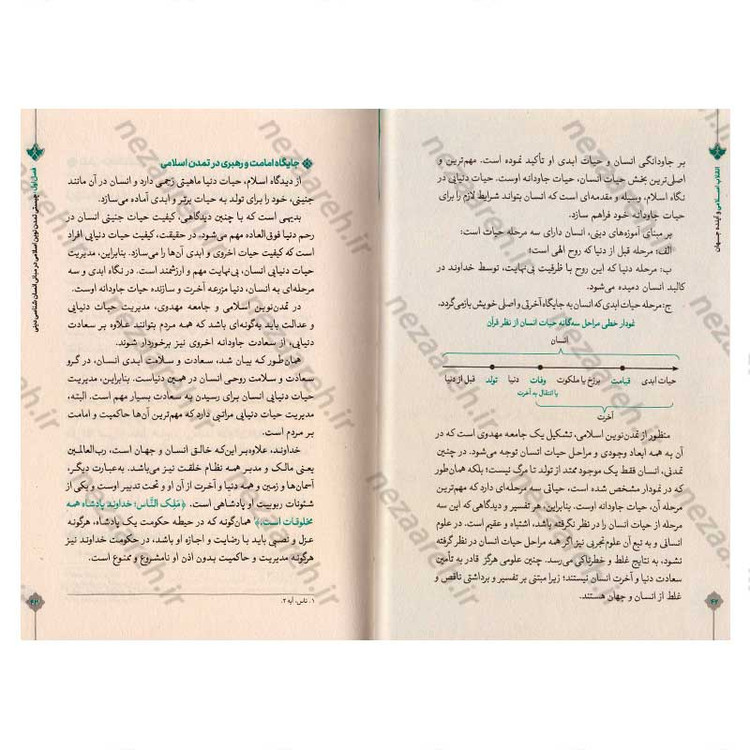 انقلاب اسلامی و آینده جهان
بر جاودانگی انسان و حیات ابدی او تأکید نموده است. مهم‌ترین و
اصلی‌ترین بخش حیات انسان، حیات جاودانه اوست. حیات دنیایی در
نگاه اسلام، وسیله و مقدمه‌ای است که انسان بتواند شرایط لازم را برای
حیات جاودانه خود فراهم سازد.
بر مبنای آموزه‌های دینی، انسان دارای سه مرحله حیات است:
الف: مرحله قبل از دنیا که روح الهی است؛
ب: مرحله دنیا که این روح با ظرفیت بی‌نهایت، توسط خداوند در
کالبد انسان دمیده می‌شود.
ج: مرحله حیات ابدی که انسان به جایگاه آخرتی و اصلی خویش بازمی‌گردد.
نمودار خطی مراحل سه‌گانه حیات انسان از نظر قرآن
انسان
حیات ابدی قیامت برزخ یا ملکوت وفات دنیا تولد قبل از دنیا
یا انتقال به آخرت
آخرت
منظور از تمدن نوین اسلامی، تشکیل یک جامعه مهدوی است که در
آن به همه ابعاد وجودی و مراحل حیات انسان توجه می‌شود. در چنین
تمدنی، انسان فقط یک موجود ممتد از تولد تا مرگ نیست؛ بلکه همان‌طور
که در نمودار مشخص شده است، حیاتی سه مرحله‌ای دارد که مهم‌ترین
مرحله آن، حیات جاودانه اوست. بنابراین، هر تفسیر و دیدگاهی که این سه
مرحله از حیات انسان را در نظر نگرفته باشد، اشتباه و عقیم است. در علوم
انسانی و به تبع آن علوم تجربی نیز اگر همه مراحل حیات انسان در نظر گرفته
نشود، به نتایج غلط و خطرناکی می‌رسد. چنین علومی هرگز قادر به تأمین
سعادت دنیا و آخرت انسان نیستند؛ زیرا مبتنی بر تفسیر و برداشتی ناقص و
غلط از انسان و جهان هستند.
۴۲
فصل اول: چیستی تمدن نوین اسلامی در مبانی انسان شناسی دینی
جایگاه امامت و رهبری در تمدن اسلامی
از دیدگاه اسلام، حیات دنیا ماهیتی رَحِمی دارد و انسان در آن مانند
جنینی، خود را برای تولد به حیات برتر و ابدی آماده می‌سازد.
بدیهی است که با چنین دیدگاهی، کیفیت حیات جنینی انسان در
رحم دنیا فوق‌العاده مهم می‌شود. در حقیقت، کیفیت حیات دنیایی افراد
است که کیفیت حیات اخروی و ابدی آن‌ها را می‌سازد. بنابراین، مدیریت
حیات دنیایی انسان، بی‌نهایت مهم و ارزشمند است. در نگاه ابدی و سه
مرحله‌ای به انسان، دنیا مزرعه آخرت و سازنده حیات جاودانه اوست.
در تمدن نوین اسلامی و جامعه مهدوی، مدیریت حیات دنیایی
و عدالت باید به‌گونه‌ای باشد که همه مردم بتوانند علاوه بر سعادت
دنیایی، از سعادت جاودانه اخروی نیز برخوردار شوند.
همان‌طور که بیان شد، سعادت و سلامت ابدی انسان، در گرو
سعادت و سلامت روحی انسان در همین دنیاست. بنابراین، مدیریت
حیات دنیایی انسان برای رسیدن به سعادت بسیار مهم است. البته،
مدیریت حیات دنیایی مراتبی دارد که مهم‌ترین آن‌ها حاکمیت و امامت
بر مردم است.
خداوند، علاوه‌بر این‌که خالق انسان و جهان است، رب‌العالمین
یعنی مالک و مدبر همه نظام خلقت نیز می‌باشد. به‌عبارت دیگر،
آسمان‌ها و زمین و همه دنیا و آخرت از آن او و تحت تدبیر اوست و یکی از
شئونات ربوبیت او پادشاهی است. ﴿مَلِکِ النَّاسِ؛ خداوند پادشاه همه
مخلوقات است.﴾۱ همان‌گونه که در حیطه حکومت یک پادشاه، هرگونه
عزل و نصبی باید با رضایت و اجازه او باشد، در حکومت خداوند نیز
هرگونه مدیریت و حاکمیت بدون اذن او نامشروع و ممنوع است.
۱. ناس، آیه ۲.
۴۳
nezaareh.ir